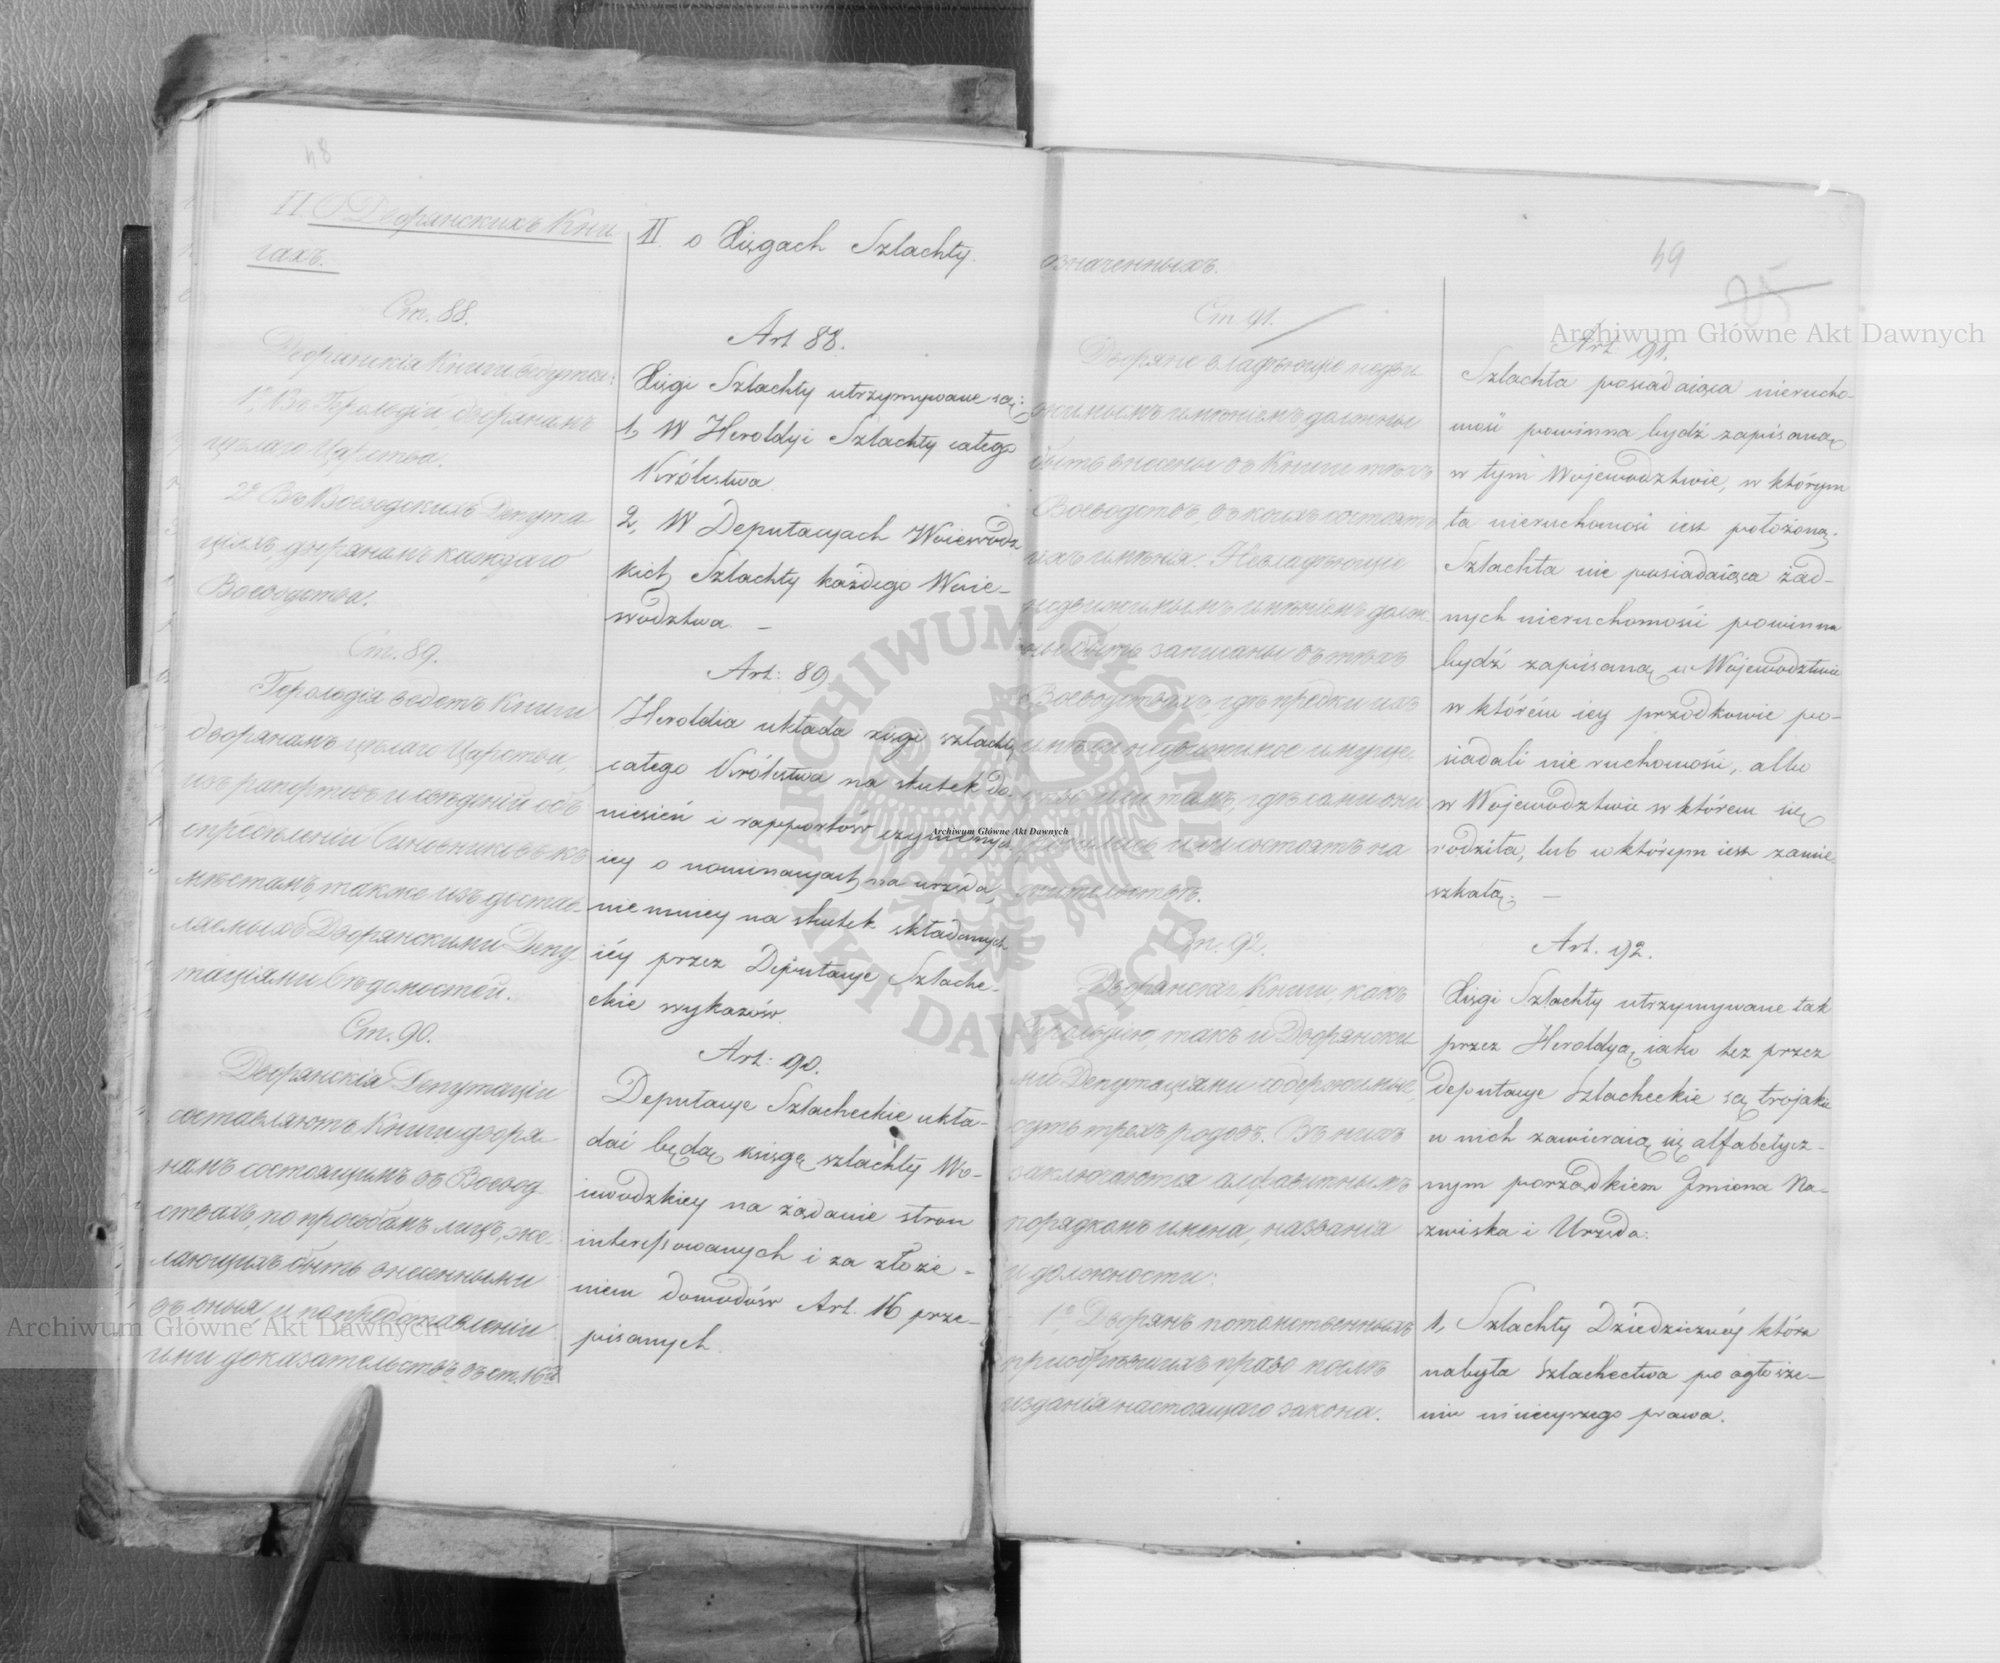 48
II. О Дворянскихъ Кни
гахъ.
Ст. 88.
Дворянскія Книги ведутся:
1е Въ Герольдіи, дворянамъ
цѣлаго Царства.
2е Въ Воеводскихъ Депута
ціяхъ, дворянамъ каждаго
Воеводства.
Ст. 89.
Герольдія ведетъ Книги
дворянамъ цѣлаго Царства,
изъ рапортовъ и свѣдѣній объ
опредѣленіи Чиновниковъ къ
мѣстамъ, также изъ достав-
ляемыхъ Дворянскими Депу-
таціями Вѣдомостей.
Ст. 90.
Дворянскія Депутаціи
составляютъ Книги дворя
намъ состоящимъ въ Воевод
ствахъ, по просьбамъ лицъ, же-
лающихъ быть внесенными
въ оныя, и по представленіи
ими доказательствъ въ ст. 16й
II o Xsięgach Szlachty.
Art 88.
Xsięgi Szlachty utrzymywane są:
1, W Heroldyi Szlachty całego
Królestwa.
2, W Deputacyach Woiewódz
kich Szlachty każdego Woie-
wództwa. —
Art: 89.
Heroldia układa xsięgi szlachty
całego Królestwa na skutek do-
niesień i rapportów czynionych
iey o nominacyach na urzęda,
niemniey na skutek składanych
iéy przez Deputacye Szlache-
ckie wykazów.
Art: 90.
Deputacye Szlacheckie ukła-
dać będą xsięgę szlachty Wo-
iewódzkiey na żądanie stron
interessowanych i za złoże-
niem dowodów Art. 16 prze-
pisanych.
49
85
означенныхъ.
Ст. 91.
Дворяне владѣющіе недви
жимымъ имѣніемъ должны
быть внесены въ Книги тѣхъ
Воеводствъ, въ коихъ состоятъ
ихъ имѣнія. Невладѣющіе
недвижимымъ имѣніемъ долж-
ны быть записаны въ тѣхъ
Воеводствахъ, гдѣ предки ихъ
имѣли недвижимое имуще-
ство или тамъ, гдѣ сами они
родились или состоятъ на
жительствѣ.
Ст. 92.
Дворянскія Книги, какъ
Герольдіею, такъ и Дворянски
ми Депутаціями содержимыя,
суть трехъ родовъ. Въ нихъ
заключаются алфавитнымъ
порядкомъ имена, названія
и должности:
1е Дворянъ потомственныхъ
пріобрѣвшихъ право послѣ
изданія настоящаго закона.
Art. 91.
Szlachta posiadaiąca nierucho-
mość powinna bydź zapisaną
w tym Województwie, w którym
ta nieruchomość iest położoną.
Szlachta nie posiadaiąca żad-
nych nieruchomości powinna
bydź zapisaną w Województwie
w którém iey przodkowie po-
siadali nieruchomość, albo
w Województwie w którem się
rodziła, lub w którym iest zamie-
szkałą. —
Art. 92.
Xsięgi Szlachty utrzymywane tak
przez Heroldyą, iako też przez
deputacye Szlacheckie są trojakie
w nich zawieraią się alfabetycz-
nym porządkiem Imiona Na-
zwiska i Urzęda.
1, Szlachty Dziedziczney która
nabyła szlachectwa po ogłosze-
niu ninieyszego prawa.
Archiwum Główne Akt Dawnych
Archiwum Główne Akt Dawnych
Archiwum Główne Akt Dawnych
ARCHIWUM GŁÓWNE AKT DAWNYCH